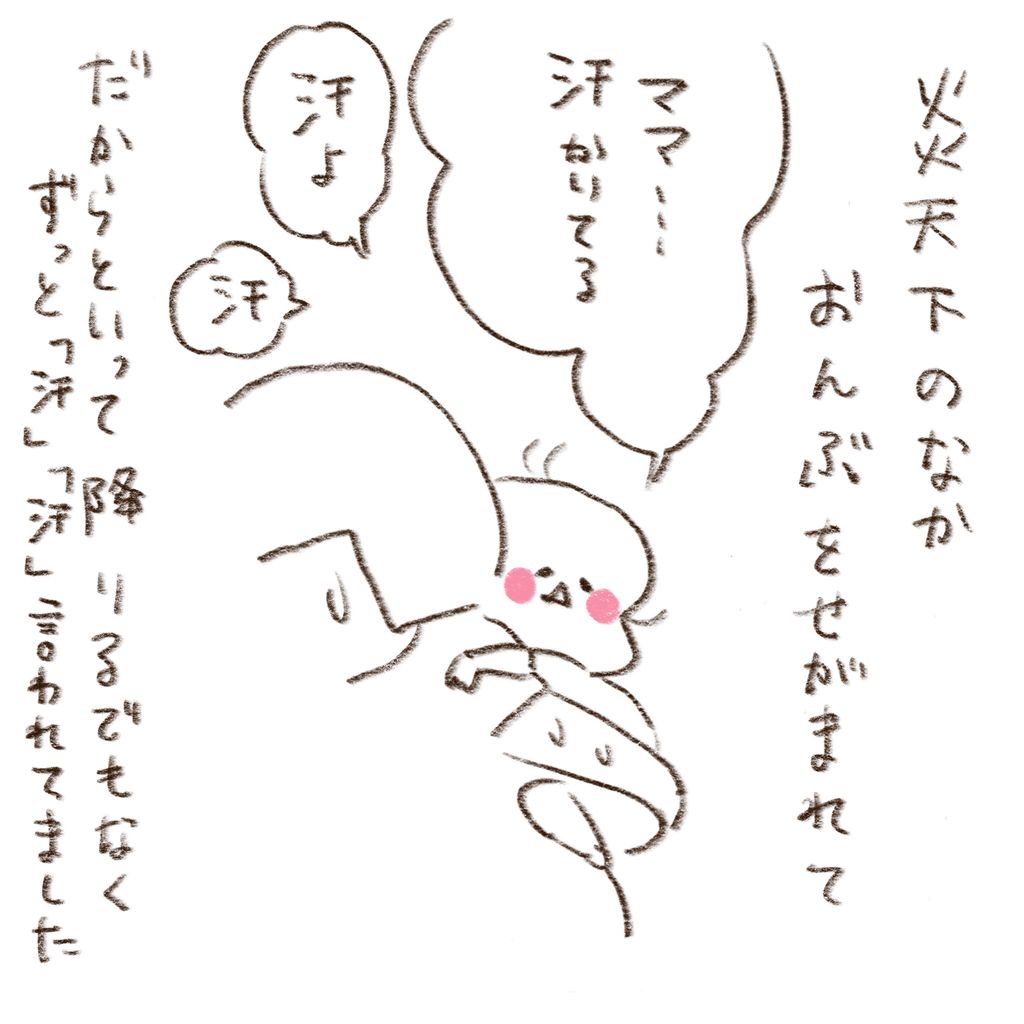 炎天下のなか
おんぶをせがまれて
ママ…
汗かいてる
汗よ
汗
だからといって降りるでもなく
ずっと「汗」「汗」言われてました